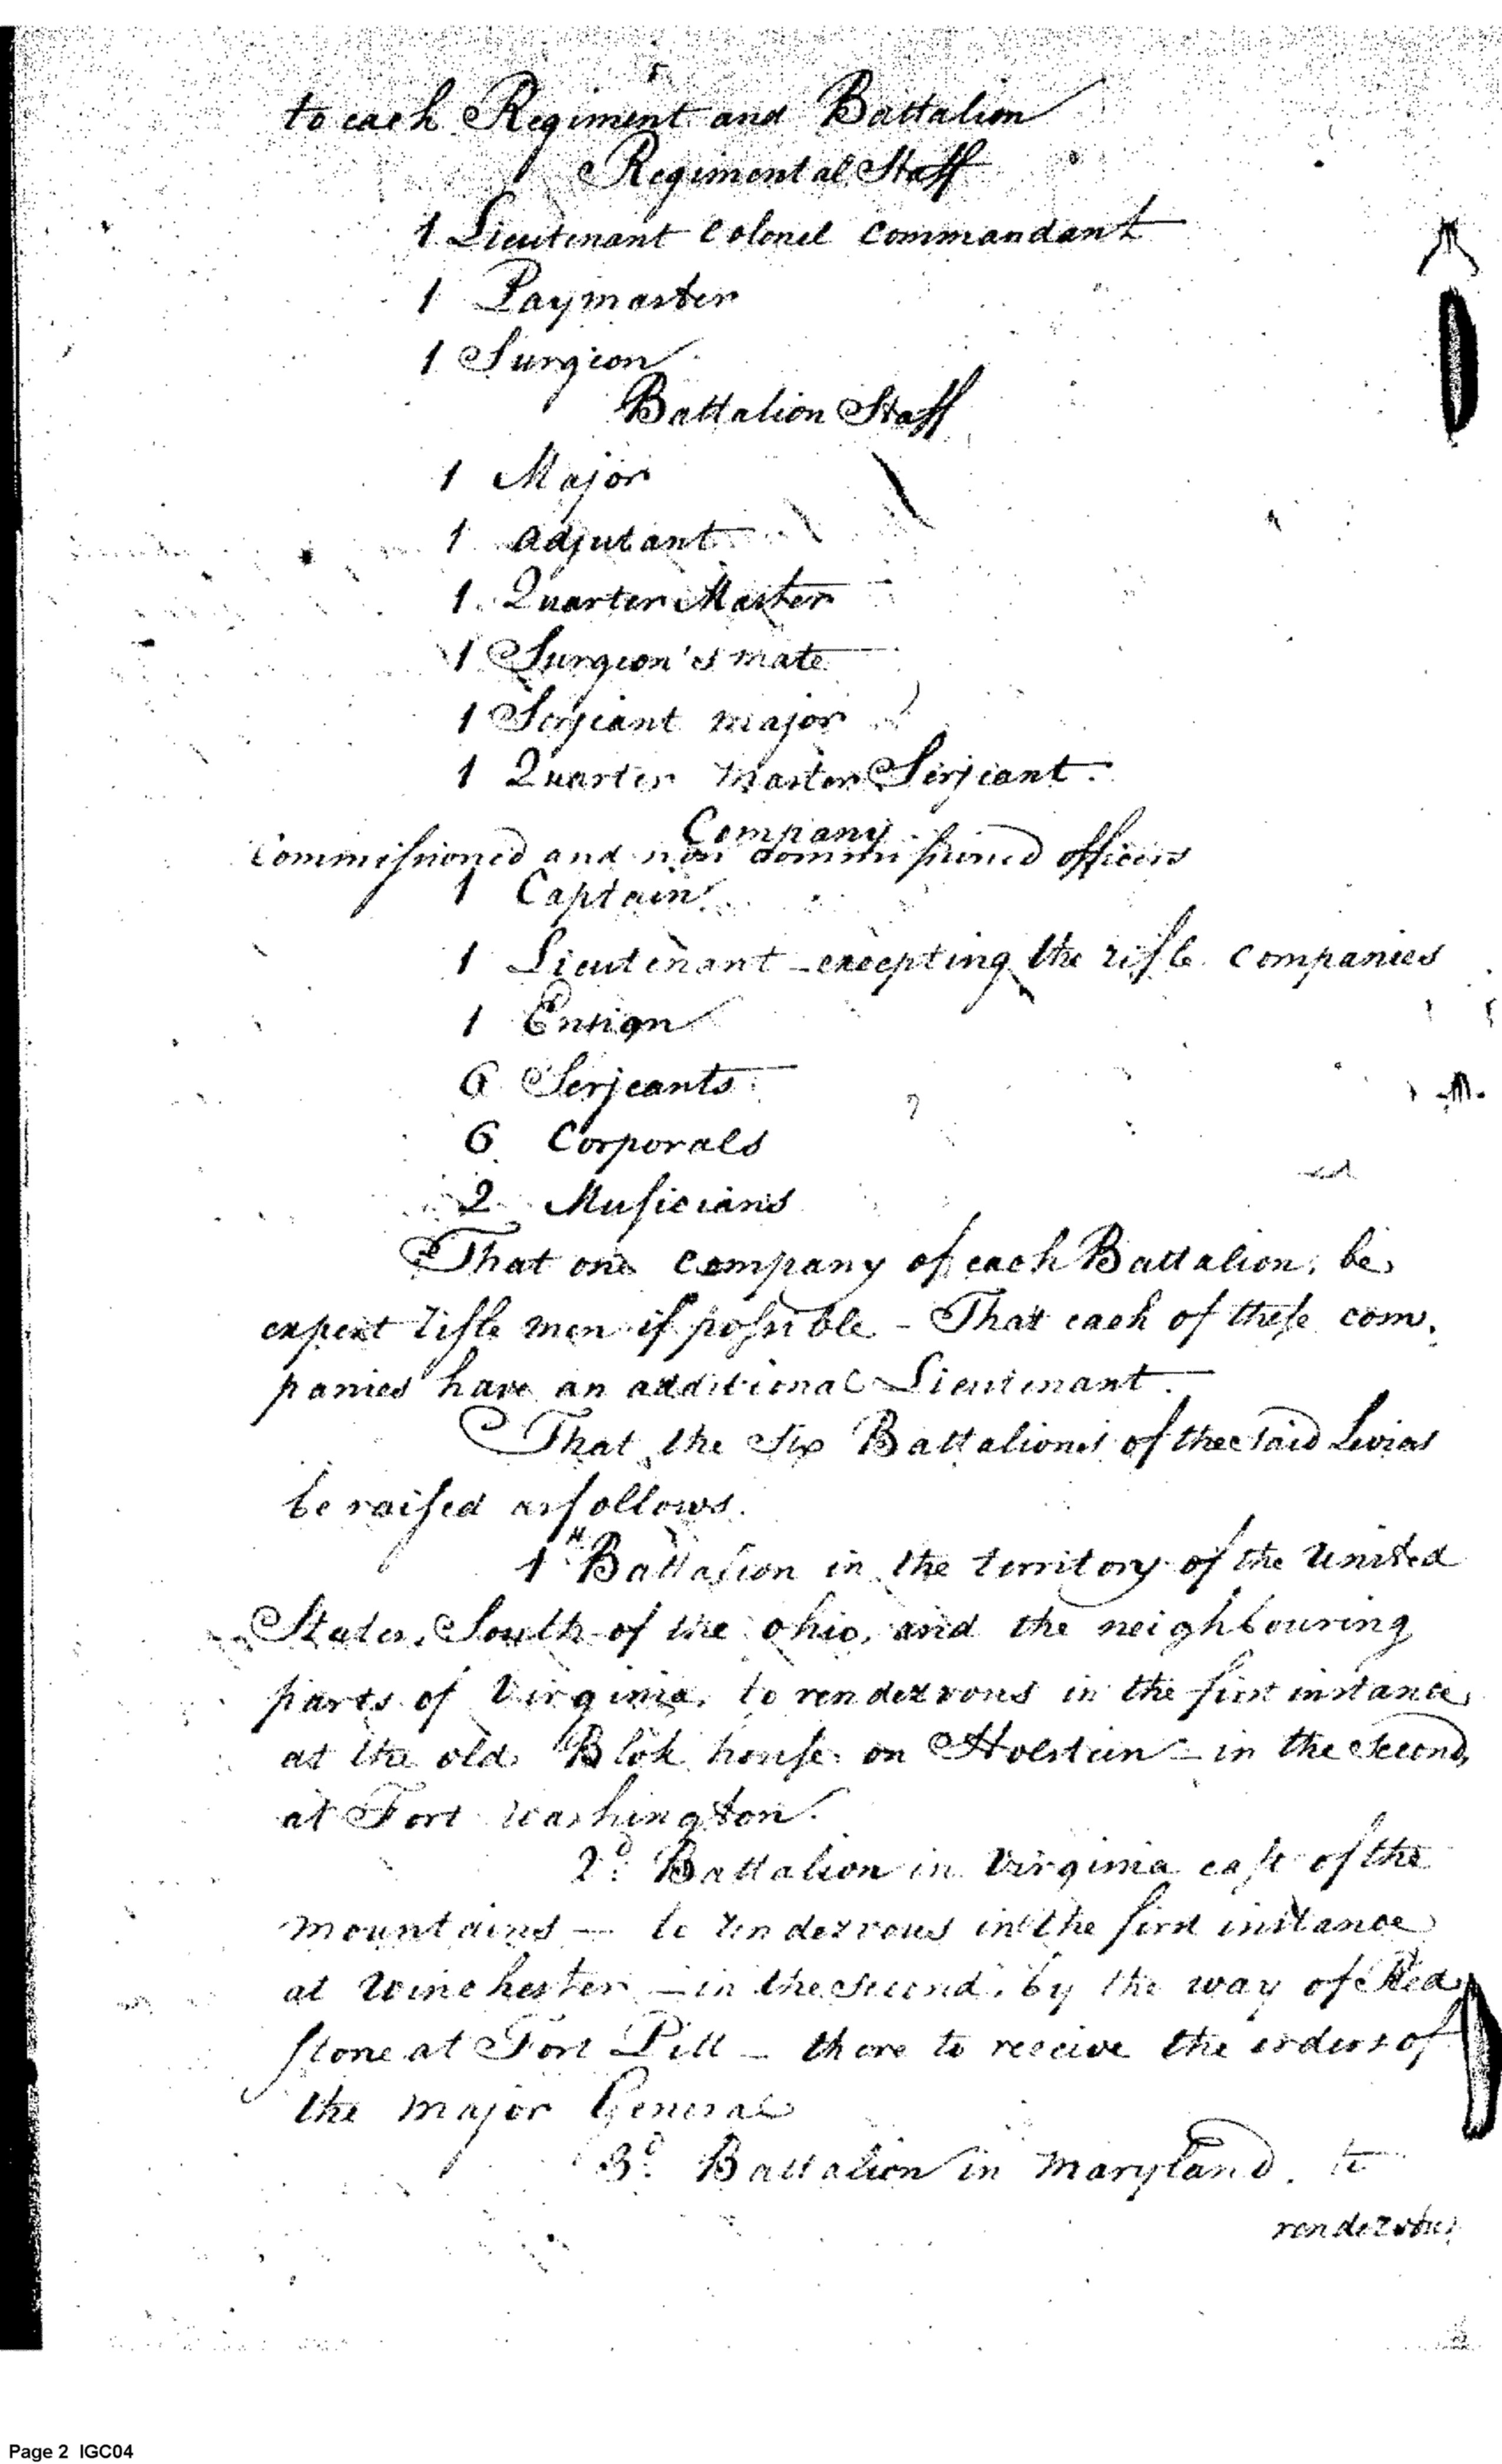 to each Regiment and Battalion
Regimental Staff
1 Lieutenant Colonel Commandant
1 Paymaster
1 Surgeon
Battalion Staff
1 Major
1 Adjutant
1 Quarter Master
1 Surgeon's mate
1 Serjeant major
1 Quarter Master Serjeant.
Company
Commissioned and non commissioned officers
1 Captain
1 Lieutenant - excepting the rifle companies
1 Ensign
6 Serjeants
6 Corporals
2 Musicians
That one company of each Battalion, be
expert rifle men if possible - That each of these com-
panies have an additional Lieutenant.
That the Six Battalions of the said Levies
be raised as follows.
1st Battalion in the territory of the United
States, South of the Ohio, and the neighbouring
parts of Virginia, to rendezvous in the first instance
at the old Blok house on Holstein - in the second,
at Fort Washington.
2d. Battalion in Virginia east of the
mountains — to rendezvous in the first instance
at Winchester - in the second, by the way of Red
stone at Fort Pitt - there to receive the orders of
the Major General
3d. Battalion in Maryland. to
rendezvous
Page 2 IGC04